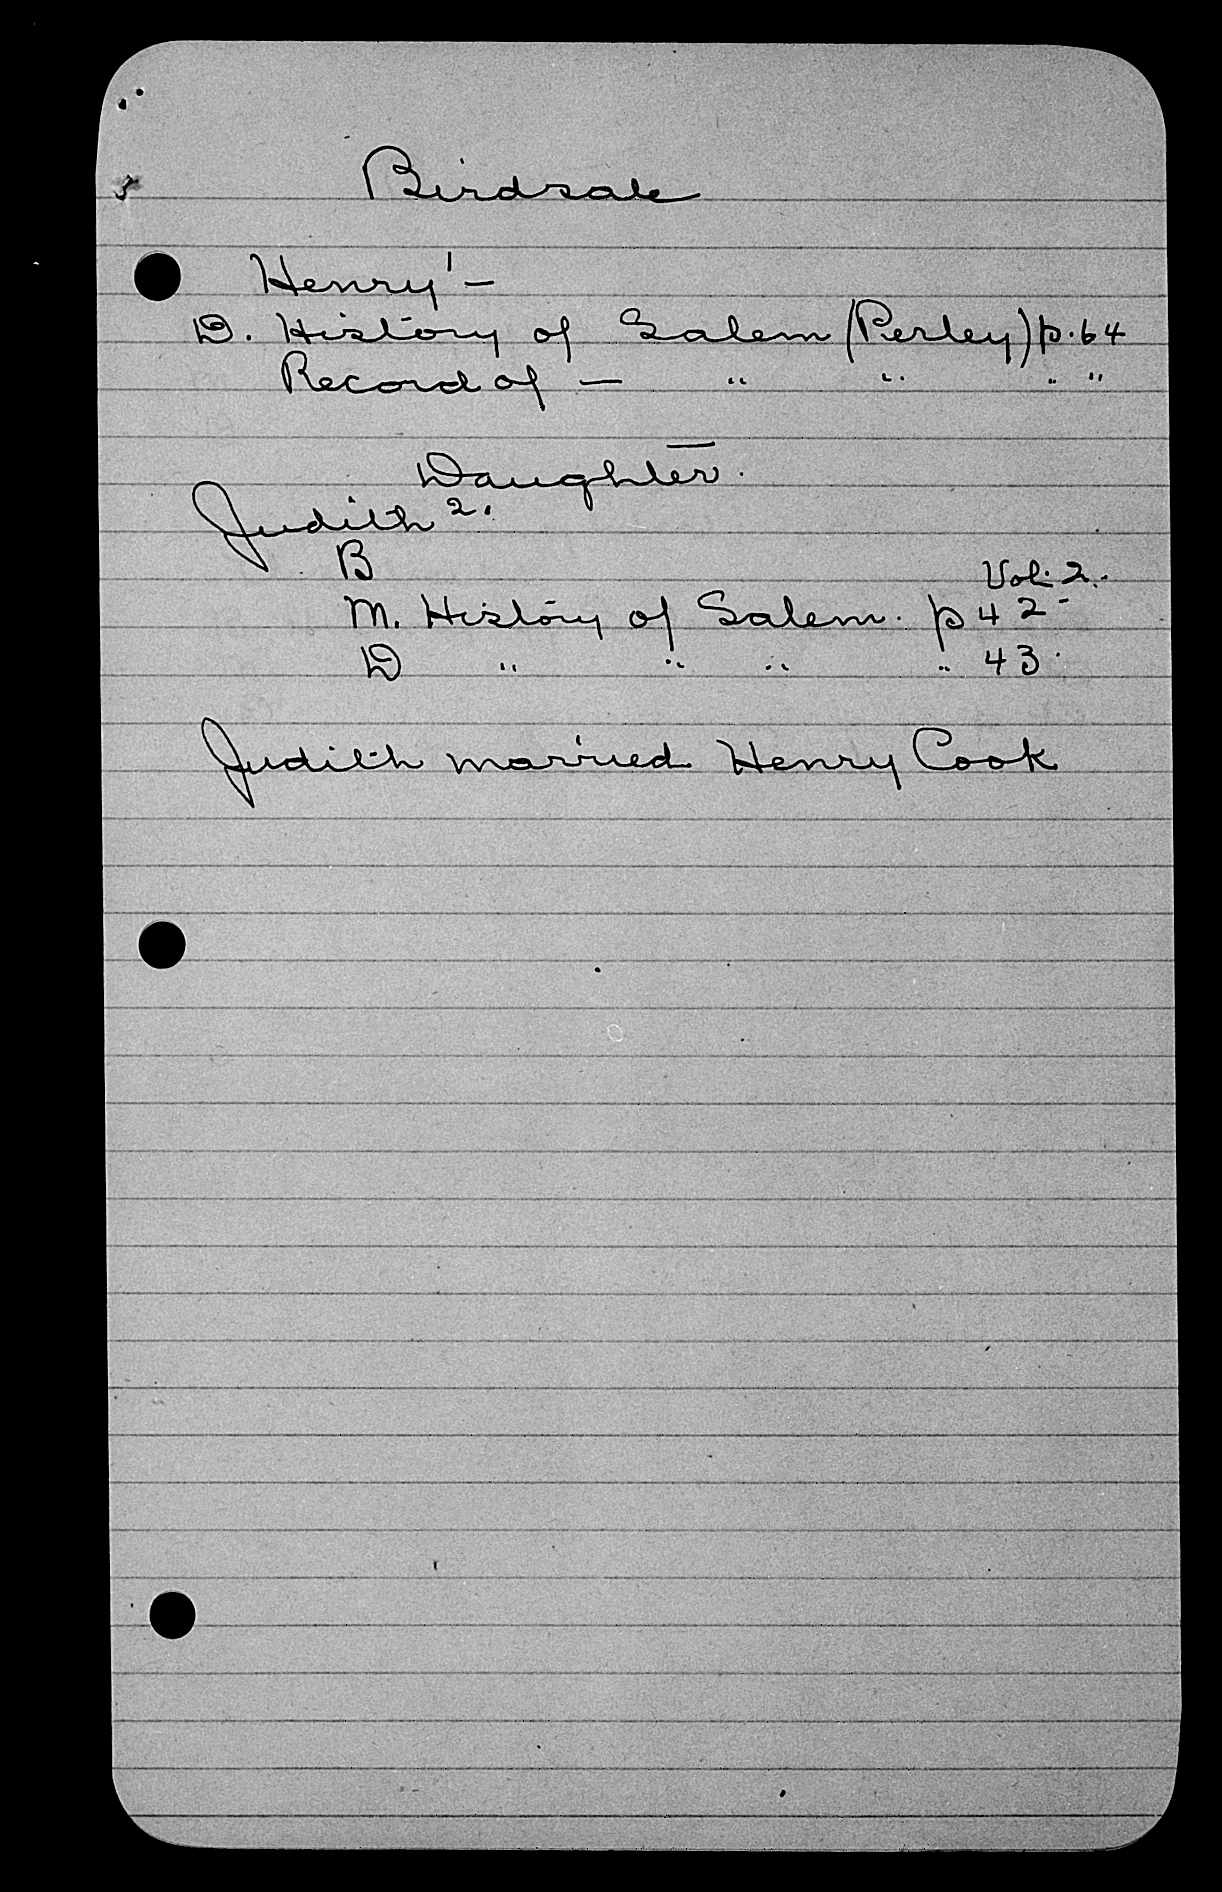 Birdsale
Henry¹ —
D. History of Salem (Perley) p. 64
Record of — " " " "
Daughter.
Judith 2.
B
Vol. 2.
M. History of Salem. p 42 -
D " " " " 43.
Judith married Henry Cook